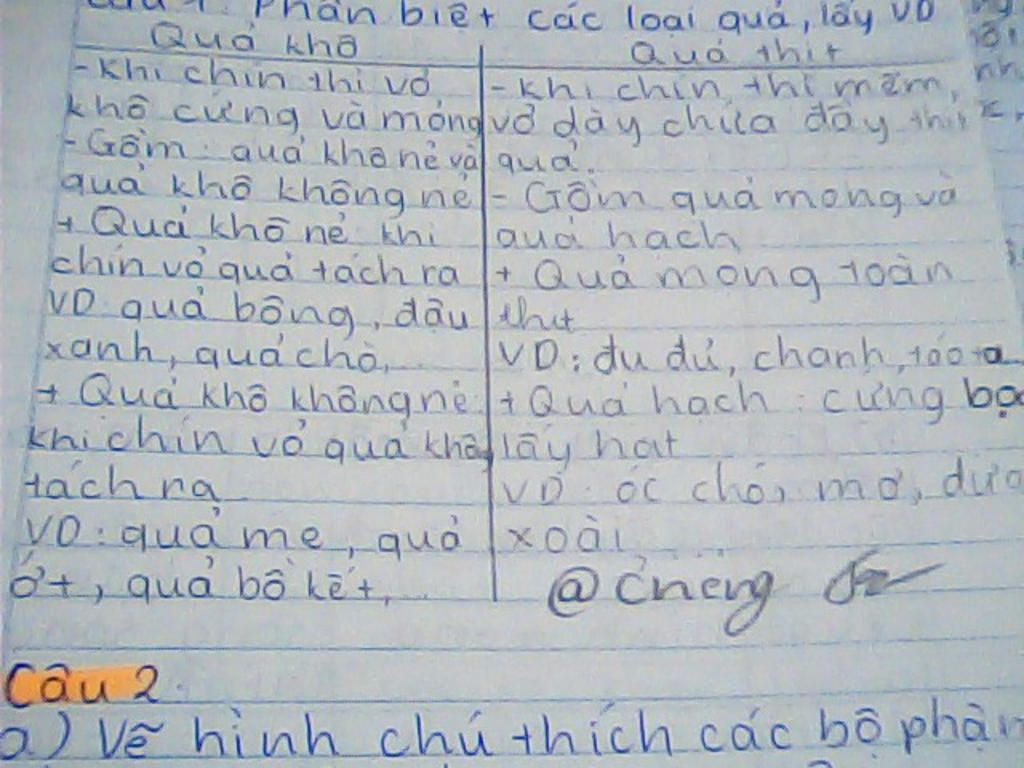 Câu 1. Phân biệt các loại quả, lấy VD
Quả khô
- Khi chín thì vỏ
khô cứng và mỏng
- Gồm: quả khô nẻ và
quả khô không nẻ
+ Quả khô nẻ khi
chín vỏ quả tách ra
VD quả bông, đậu
xanh, quả chò,...
+ Quả khô không nẻ:
khi chín vỏ quả không
tách ra
VD: quả me, quả
ớt, quả bồ kết,...
Quả thịt
- Khi chín thì mềm,
vỏ dày chứa đầy thịt
quả.
- Gồm quả mọng và
quả hạch
+ Quả mọng toàn
thịt
VD: đu đủ, chanh, táo ta
+ Quả hạch: cứng bọc
lấy hạt
VD: óc chó, mơ, dừa
xoài,...
Câu 2.
a) Vẽ hình chú thích các bộ phận